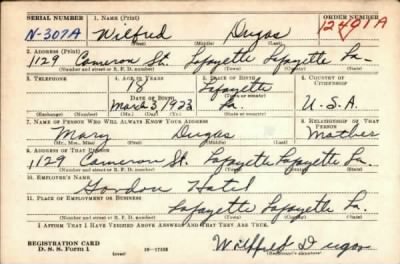 SERIAL NUMBER 1. NAME (Print) ORDER NUMBER
N-307A Wilfred Dugas 12491A
(First) (Middle) (Last)
2. ADDRESS (Print)
1129 Cameron St. Lafayette Lafayette La.
(Number and street or R. F. D. number) (Town) (County) (State)
3. TELEPHONE 4. AGE IN YEARS 5. PLACE OF BIRTH 6. COUNTRY OF CITIZENSHIP
18 Lafayette
DATE OF BIRTH (Town or county)
March 3, 1923 La. U.S.A.
(Exchange) (Number) (Mo.) (Day) (Yr.) (State or country)
7. NAME OF PERSON WHO WILL ALWAYS KNOW YOUR ADDRESS 8. RELATIONSHIP OF THAT PERSON
Mary Dugas Mother
(Mr., Mrs., Miss) (First) (Middle) (Last)
9. ADDRESS OF THAT PERSON
1129 Cameron St. Lafayette Lafayette La.
(Number and street or R. F. D. number) (Town) (County) (State)
10. EMPLOYER'S NAME
Gordon Hotel
11. PLACE OF EMPLOYMENT OR BUSINESS
Lafayette Lafayette La.
(Number and street or R. F. D. number) (Town) (County) (State)
I AFFIRM THAT I HAVE VERIFIED ABOVE ANSWERS AND THAT THEY ARE TRUE.
REGISTRATION CARD
D. S. S. Form 1 (over) 16—17105 Wilffred Dugas
(Registrant's signature)